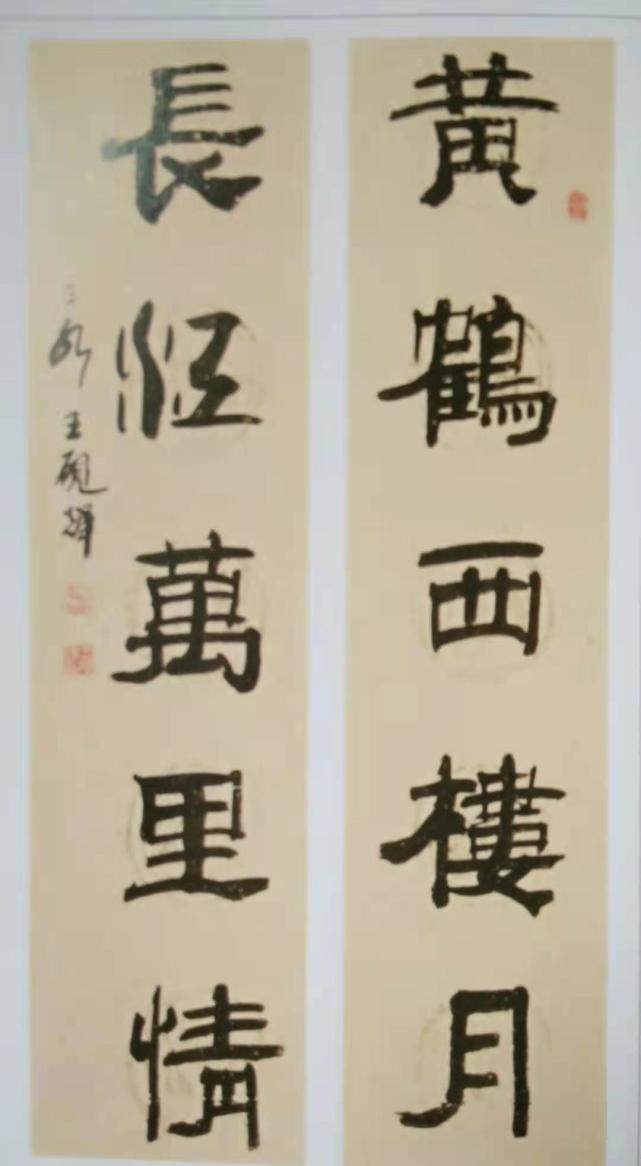 黃鶴西樓月
長江萬里情
王硯輝